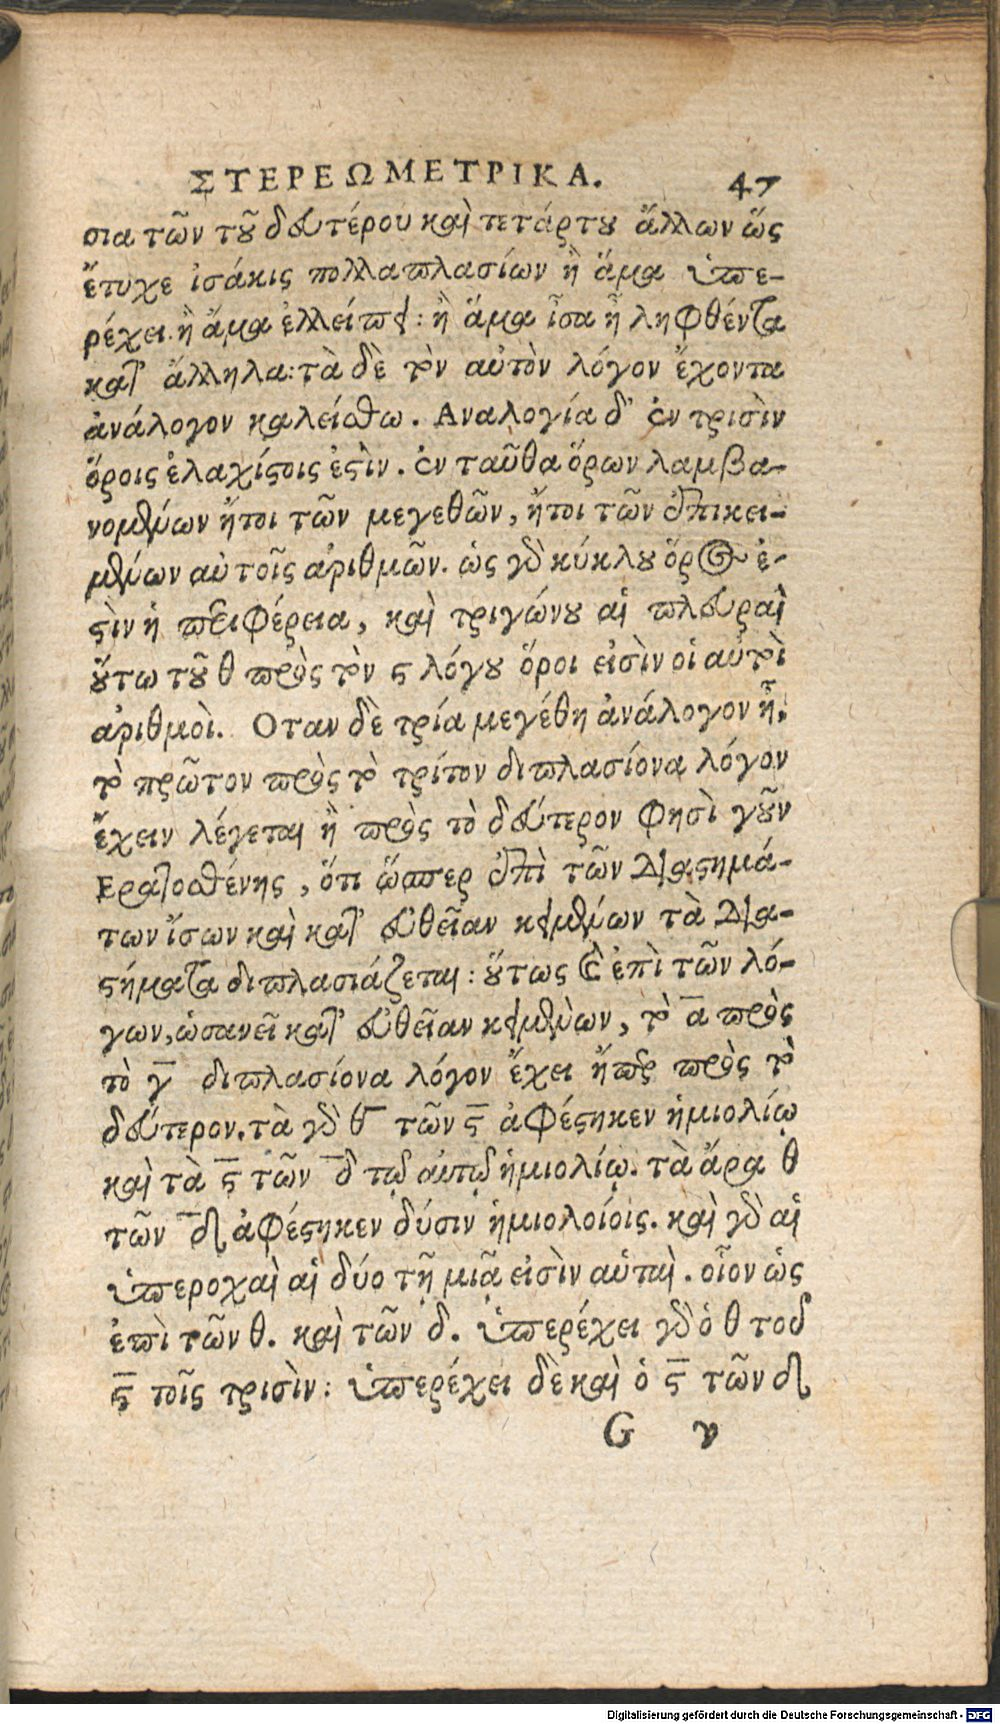 ΣΤΕΡΕΩΜΕΤΡΙΚΑ. 47
σια τῶν τοῦ δευτέρου καὶ τετάρτου ἄλλων ὥς
ἔτυχε ἰσάκις πολλαπλασίων ἢ ἅμα ὑπε-
ρέχει. ἢ ἅμα ἐλλείπει: ἢ ἅμα ἶσα ἦ ληφθέντα
κατ' ἄλληλα: τὰ δὲ τὸν αὐτὸν λόγον ἔχοντα
ἀνάλογον καλείσθω. Αναλογία δ' ἐν τρισὶν
ὅροις ἐλαχίστοις ἐστὶν. ἐν ταῦθα ὅρων λαμβα-
νομένων ἤτοι τῶν μεγεθῶν, ἤτοι τῶν ἐπικει-
μένων αὐτοῖς ἀριθμῶν. ὡς γὰρ κύκλου ὅρος ἐ-
στὶν ἡ περιφέρεια, καὶ τριγώνου αἱ πλευραὶ
οὕτω τοῦ θ πρὸς τὸν ϛ λόγου ὅροι εἰσὶν οἱ αὐτοὶ
ἀριθμοὶ. Οταν δὲ τρία μεγέθη ἀνάλογον ἦ,
τὸ πρῶτον πρὸς τὸ τρίτον διπλασίονα λόγον
ἔχειν λέγεται ἢ πρὸς τὸ δεύτερον φησὶ γοῦν
Ερατοσθένης, ὅτι ὥσπερ ἐπὶ τῶν διαστημά-
των ἴσων καὶ κατ' εὐθεῖαν κειμένων τὰ δια-
στήματα διπλασιάζεται: οὕτως καὶ ἐπὶ τῶν λό-
γων, ὡσανεῖ κατ' εὐθεῖαν κειμένων, τὸ α̅ πρὸς
τὸ γ̅ διπλασίονα λόγον ἔχει ἤπερ πρὸς τὸ
δεύτερον. τὰ γὰρ θ̅ τῶν ϛ̅ ἀφέστηκεν ἡμιολίῳ
καὶ τὰ ϛ̅ τῶν δ̅ τῷ αὐτῷ ἡμιολίῳ. τὰ ἄρα θ
τῶν δ̅ ἀφέστηκεν δύσιν ἡμιολοίοις. καὶ γὰρ αἱ
ὑπεροχαὶ αἱ δύο τῇ μιᾷ εἰσὶν αὑταὶ. οἷον ὡς
ἐπὶ τῶν θ. καὶ τῶν δ. ὑπερέχει γὰρ ὁ θ τοῦ
ϛ̅ τοῖς τρισὶν: ὑπερέχει δὲ καὶ ὁ ϛ̅ τῶν δ
G v
Digitalisierung gefördert durch die Deutsche Forschungsgemeinschaft - DFG